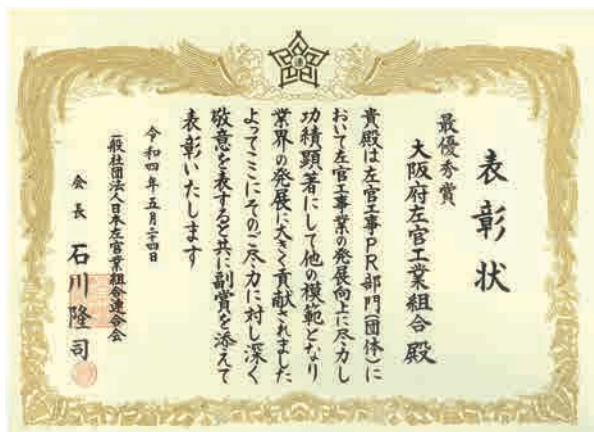 表彰状
最優秀賞
大阪府左官工業組合 殿
貴殿は左官工事PR部門(団体)に
おいて左官工事業の発展向上に尽力し
功績顕著にして他の模範となり
業界の発展に大きく貢献されました
よってここにそのご尽力に対し深く
敬意を表すると共に副賞を添えて
表彰いたします
令和四年五月二十四日
一般社団法人日本左官業組合連合会
会長 石川隆司